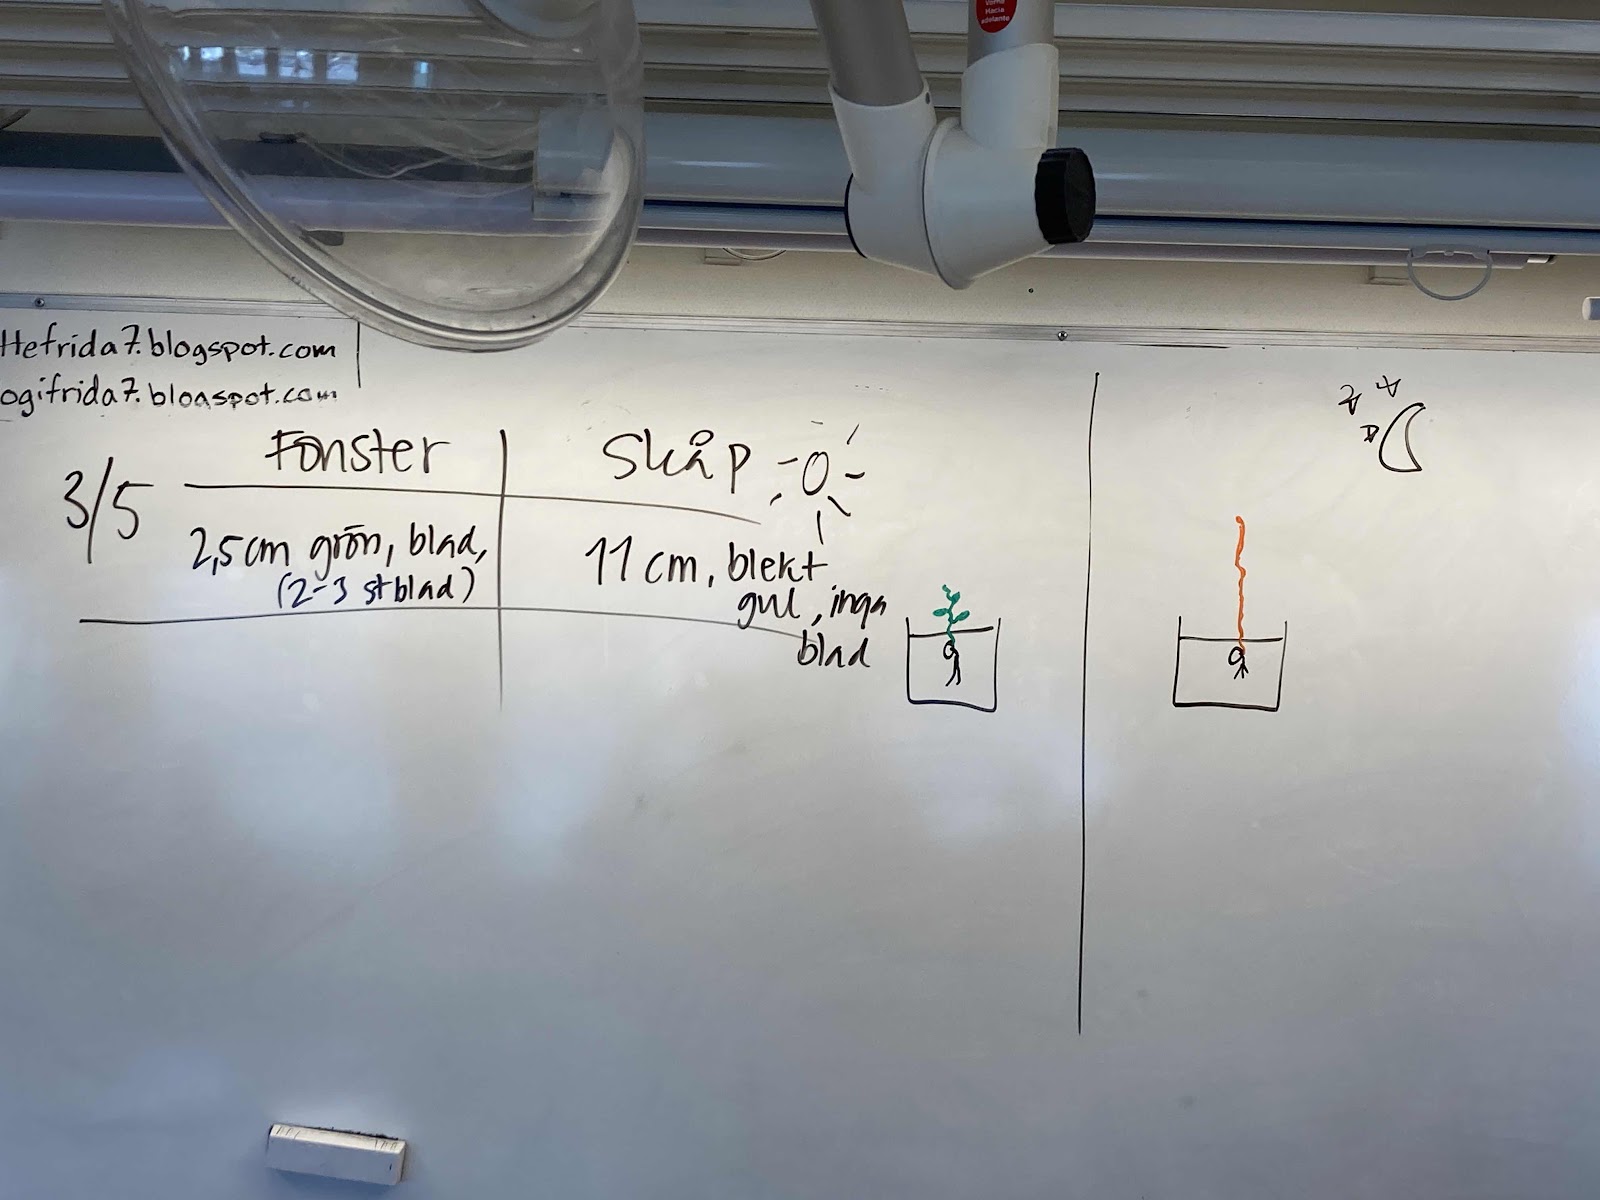 Varna
Hacia
adelante
Hefrida7.blogspot.com
ogifrida7.blogspot.com
Fönster
Skåp
3/5
2,5cm grön, blad,
(2-3 st blad)
11 cm, blekt
gul, inga
blad